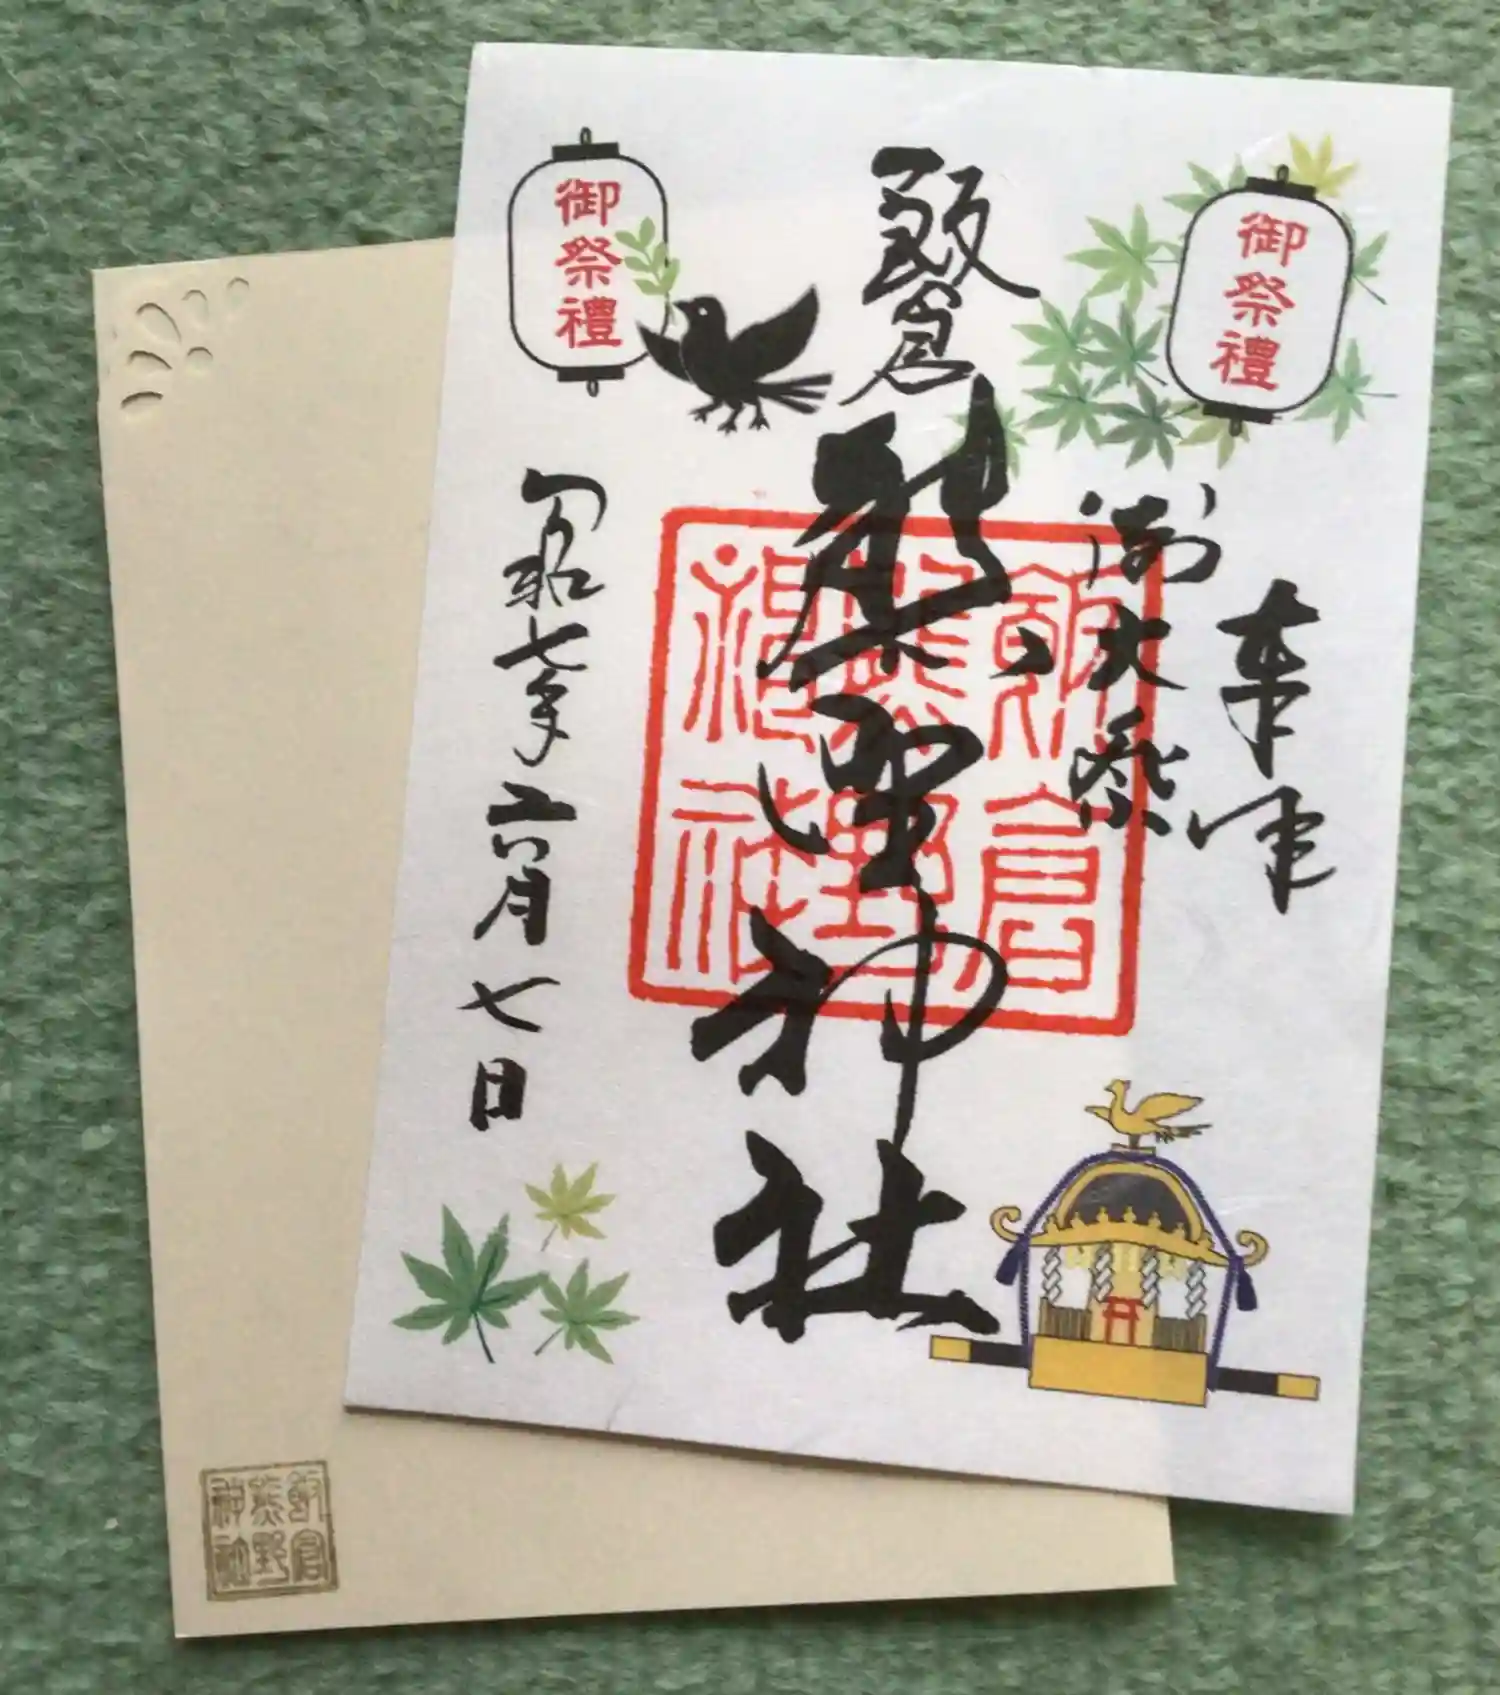 御祭禮
奉拝
御大祭
飯倉
熊野神社
飯倉
熊野
神社
御祭禮
令和七年六月七日
飯倉
熊野
神社